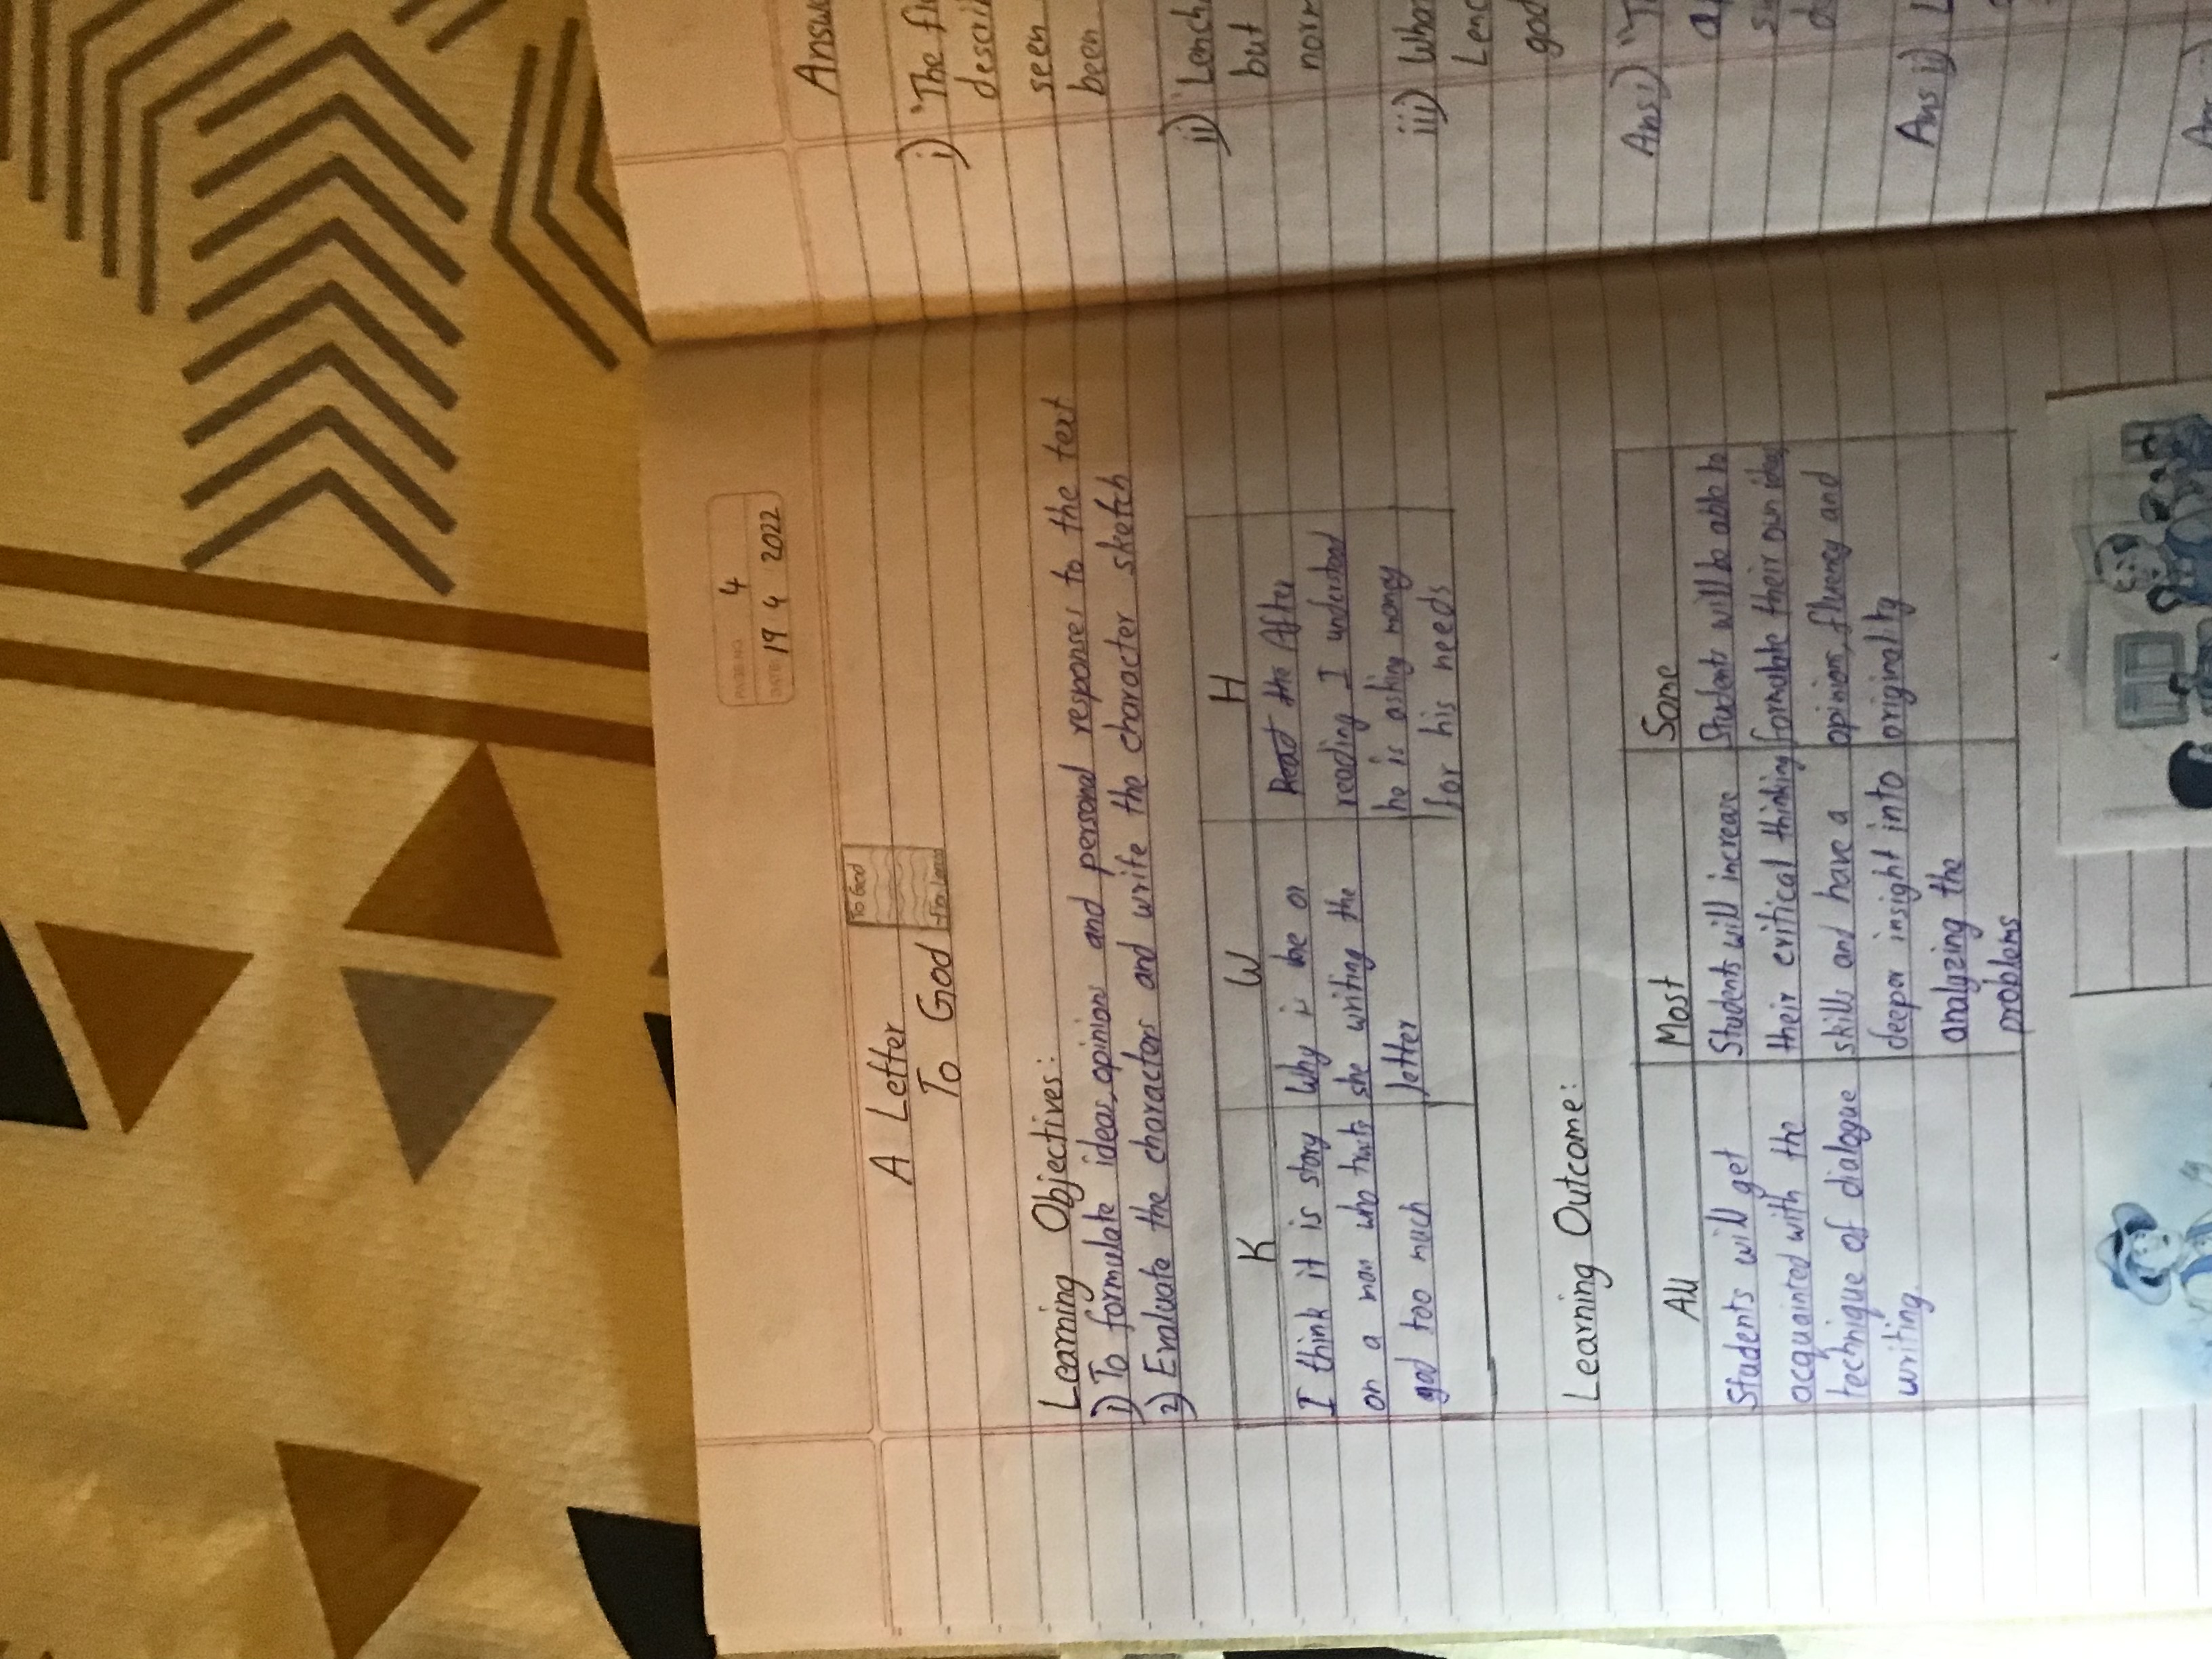 PAGE NO. 4
DATE: 19 4 2022
A Letter
To God
To God
Learning Objectives:
1) To formulate ideas, opinions and personal responses to the text
2) Evaluate the characters and write the character sketch
K
I think it is story
on a man who trusts
god too much
W
Why is he or
she writing the
letter
H
Read the After
reading I understood
he is asking money
for his needs
Learning Outcome:
All
Students will get
acquainted with the
technique of dialogue
writing.
Most
Students will increase
their critical thinking
skills and have a
deeper insight into
analyzing the
problems
Some
Students will be able to
formulate their own ideas,
opinions, fluency and
originality
Answ
i) "The fl
descri
seen
been
ii) Lench
but
norm
iii) What
Lenc
god
Ans i) "T
a
su
d
Ans ii) L